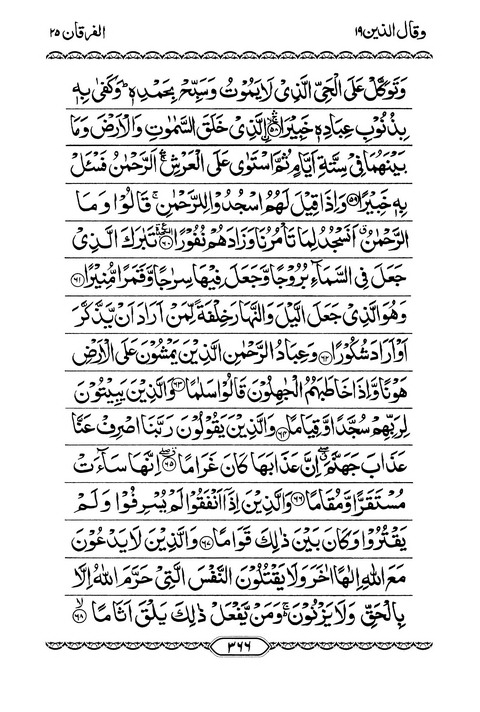 وقال الذين ۱۹
الفرقان ۲۵
وَتَوَكَّلْ عَلَى الْحَيِّ الَّذِىْ لَا يَمُوْتُ وَسَبِّحْ بِحَمْدِهٖ ؕ وَكَفٰى بِهٖ
بِذُنُوْبِ عِبَادِهٖ خَبِيْرًا ۚۛ ۙ‏﴿۵۸﴾ الَّذِىْ خَلَقَ السَّمٰوٰتِ وَالْاَرْضَ وَمَا
بَيْنَهُمَا فِىْ سِتَّةِ اَيَّامٍ ثُمَّ اسْتَوٰى عَلَى الْعَرْشِ ۛۚ اَلرَّحْمٰنُ فَسْئَلْ
بِهٖ خَبِيْرًا ﴿۵۹﴾ وَاِذَا قِيْلَ لَهُمُ اسْجُدُوْا لِلرَّحْمٰنِ ۚ قَالُوْا وَمَا
الرَّحْمٰنُ ۗ اَنَسْجُدُ لِمَا تَاْمُرُنَا وَزَادَهُمْ نُفُوْرًا ﴿۶۰﴾ تَبٰرَكَ الَّذِىْ
جَعَلَ فِى السَّمَآءِ بُرُوْجًا وَّجَعَلَ فِيْهَا سِرٰجًا وَّقَمَرًا مُّنِيْرًا ﴿۶۱﴾
وَهُوَ الَّذِىْ جَعَلَ الَّيْلَ وَالنَّهَارَ خِلْفَةً لِّمَنْ اَرَادَ اَنْ يَّذَّكَّرَ
اَوْ اَرَادَ شُكُوْرًا ﴿۶۲﴾ وَعِبَادُ الرَّحْمٰنِ الَّذِيْنَ يَمْشُوْنَ عَلَى الْاَرْضِ
هَوْنًا وَّاِذَا خَاطَبَهُمُ الْجٰهِلُوْنَ قَالُوْا سَلٰمًا ﴿۶۳﴾ وَالَّذِيْنَ يَبِيْتُوْنَ
لِرَبِّهِمْ سُجَّدًا وَّقِيَامًا ﴿۶۴﴾ وَالَّذِيْنَ يَقُوْلُوْنَ رَبَّنَا اصْرِفْ عَنَّا
عَذَابَ جَهَنَّمَ ۖ اِنَّ عَذَابَهَا كَانَ غَرَامًا ۖ ﴿۶۵﴾ اِنَّهَا سَآءَتْ
مُسْتَقَرًّا وَّمُقَامًا ﴿۶۶﴾ وَالَّذِيْنَ اِذَآ اَنْفَقُوْا لَمْ يُسْرِفُوْا وَلَمْ
يَقْتُرُوْا وَكَانَ بَيْنَ ذٰلِكَ قَوَامًا ﴿۶۷﴾ وَالَّذِيْنَ لَا يَدْعُوْنَ
مَعَ اللّٰهِ اِلٰهًا اٰخَرَ وَلَا يَقْتُلُوْنَ النَّفْسَ الَّتِىْ حَرَّمَ اللّٰهُ اِلَّا
بِالْحَقِّ وَلَا يَزْنُوْنَ ۚ وَمَنْ يَّفْعَلْ ذٰلِكَ يَلْقَ اَثَامًا ۙ ﴿۶۸﴾
۳۶۶